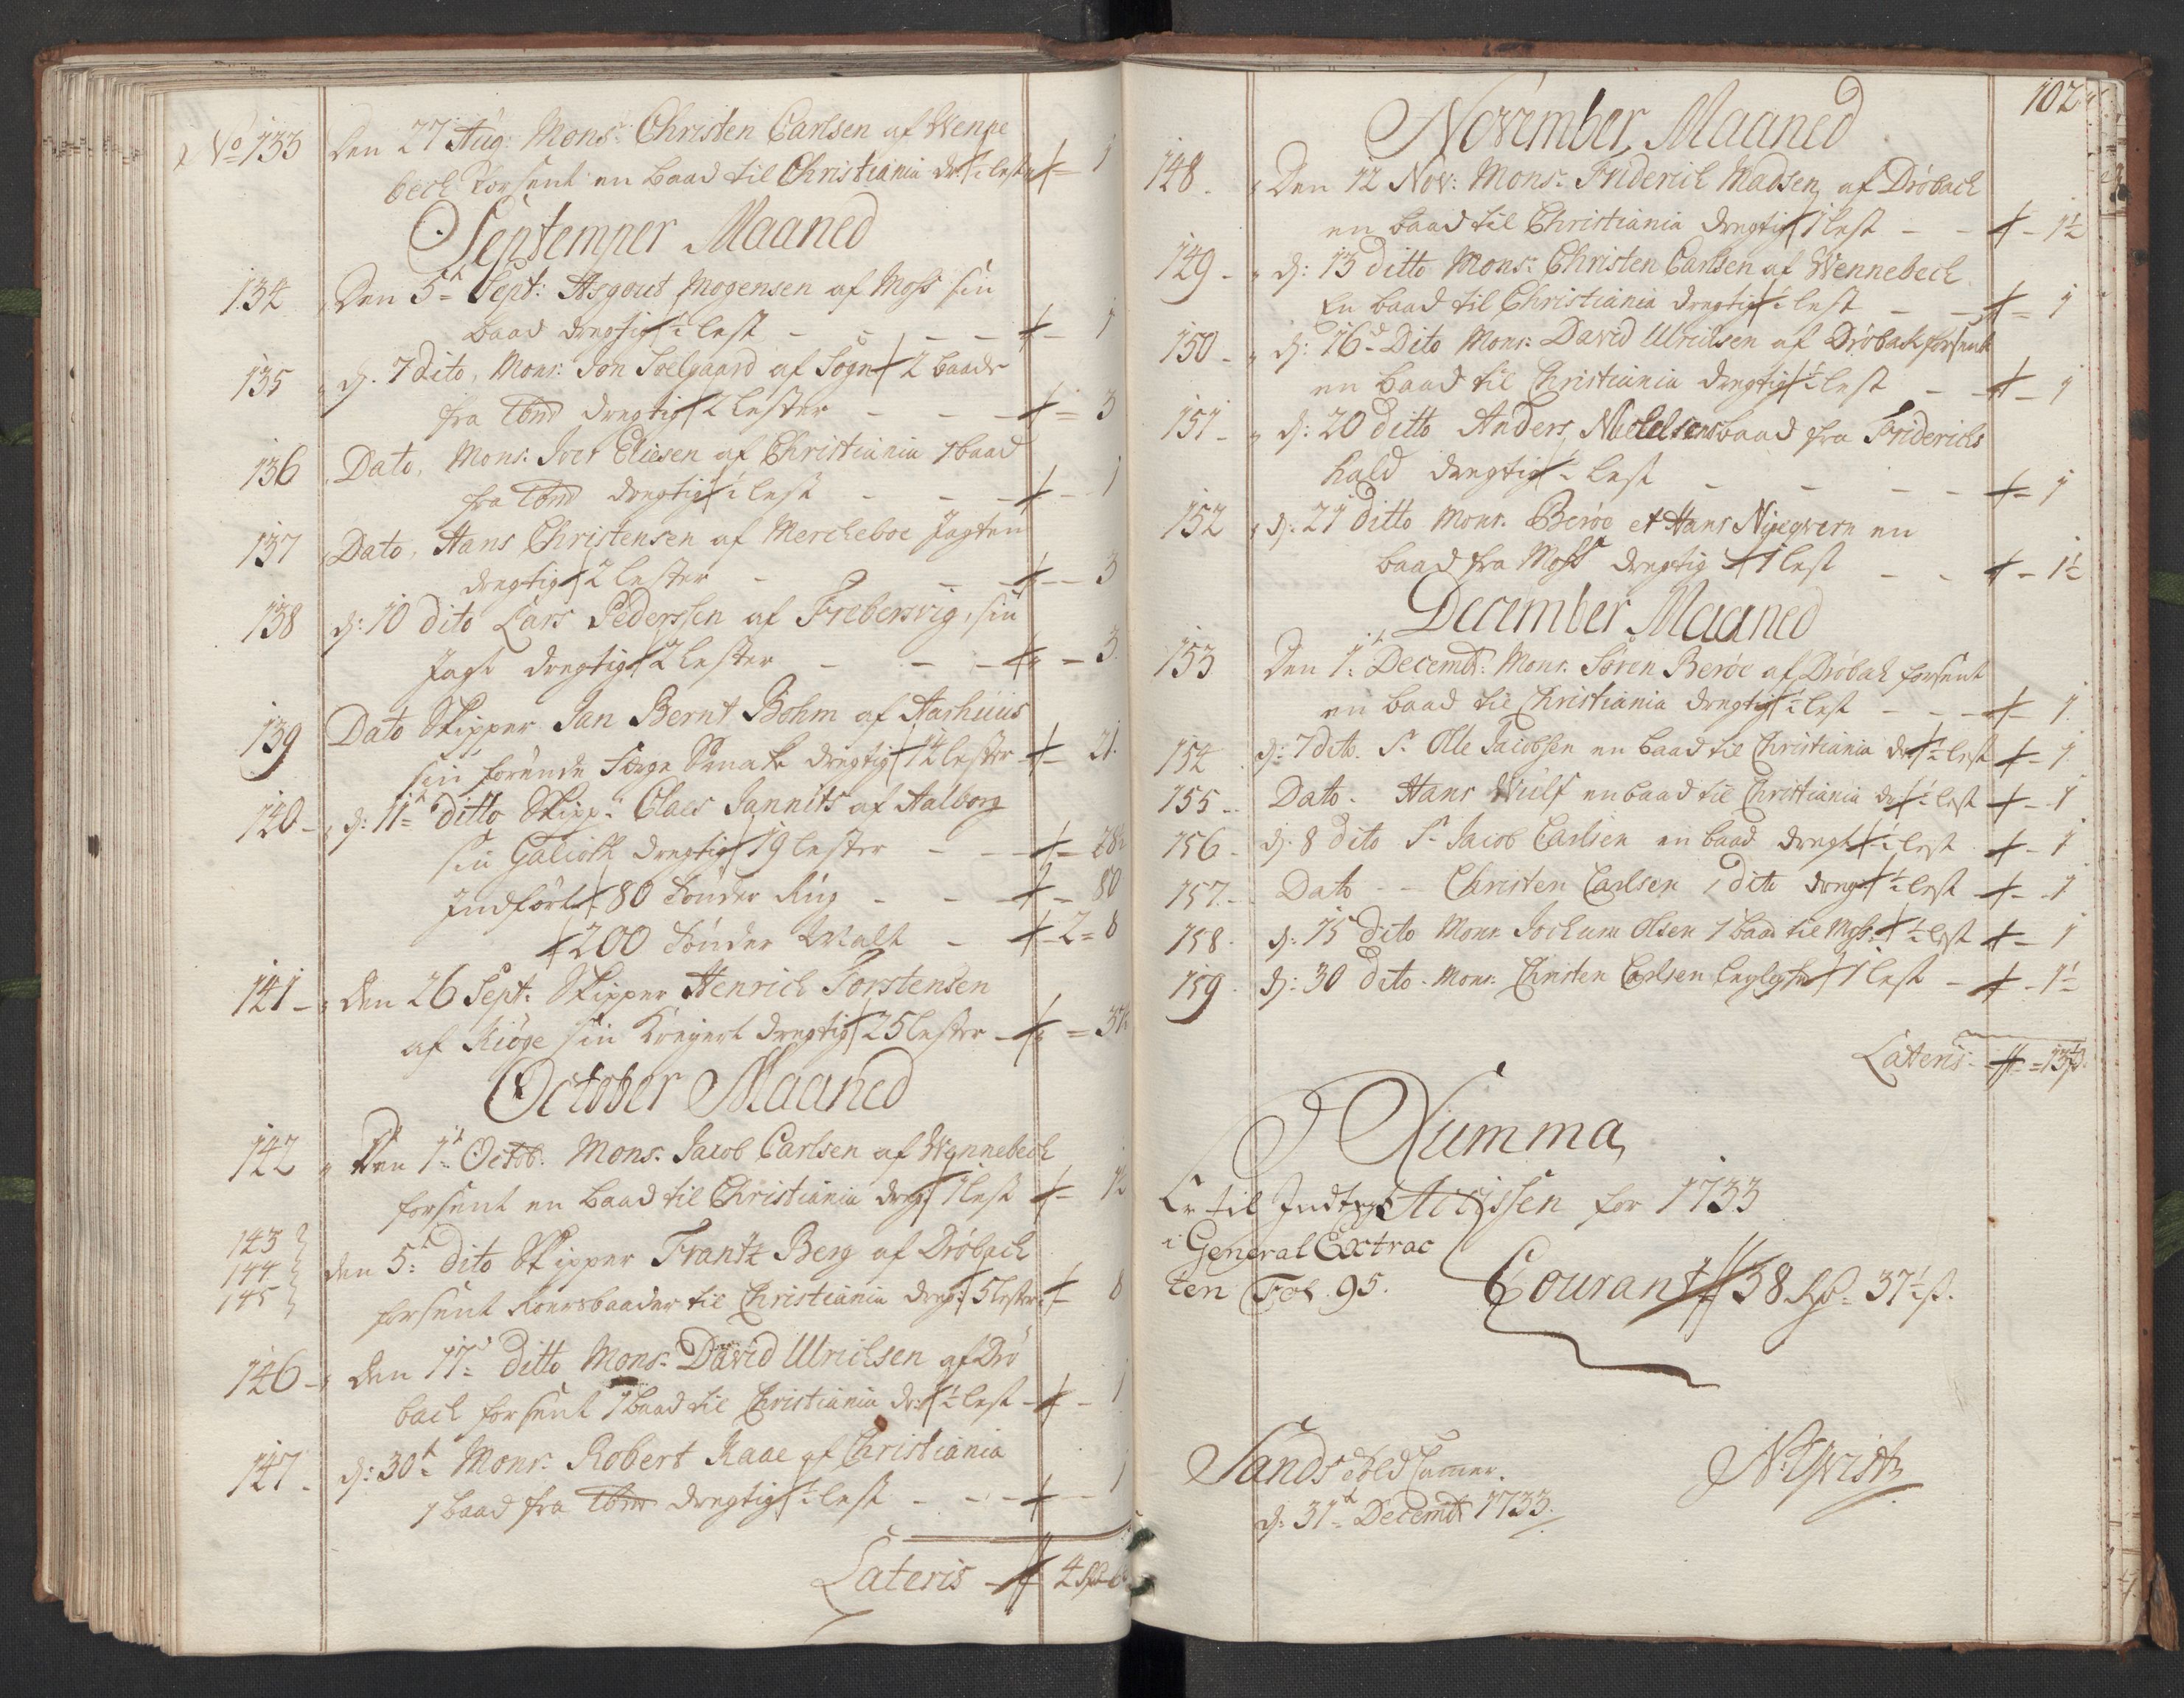 No 133 Den 27 Aug: Mons:r Christen Carlsen af Wenne
beck forsent en baad til Christiania dr: ½ lester 1
Septemper Maaned
134 Den 5t Sept: Asgout Mogensen af Moss sin
baad dregtig ½ lest - - - - 1
135 d. 7 dito, Mons: Jon Soelgaard af Sogn 2 baade
fra dregtig 2 lester - - - 3
136 Dato, Mons: Iver Eliesen af Christiania 1 baad
fra dregtig ½ lest - - - 1
137 Dato, Hans Christensen af Mercheboe Jagten
dregtig 2 lester - - - 3
138 d: 10 dito Lars Pederssen af Frebersvig, sin
Jagt dregtig 2 lester - - - 3.
139 Dato Skipper Jan Bernt Bohm af Aarhuus
sin førende Smak dregtig 14 lester 21.
140 - d: 11t ditto Skipp:r Claes Jannits af Aalborg
sin Galioth dregtig 19 lester - - 28½
Indført 80 Tønder Rug - - 80
200 Tønder Malt - 2 = 8
141 - Den 26 Sept: Skipper Henrich Torstensen
af Kiøge sin Kreyert dregtig 25 lester - 37½
October Maaned
142 Den 1t Octob: Mons: Jacob Carlsen af Wynnebech
forsent en baad til Christiania dreg: 1 lest 1½
143
144 Den 5t dito Skipper Frantz Berg af Drøbach
145 forsent baader til Christiania dreg: 5 lester 8
146 - Den 11t ditto Mons: David Ulrichsen af Drø
bach forsent 1 baad til Christiania dr: ½ lest - 1
147 - d: 30t Mons: Robert Kaae af Christiania
1 baad fra dregtig ½ lest - - - 1
Lateris - 4
102
November Maaned
148. Den 12 Nov: Mons: Friderich Madsen af Drøbach
en baad til Christiania dregtig 1 lest - - 1½
149 - d: 13 ditto Mons: Christen Carlsen af Wennebech
En baad til Christiania dregtig ½ lest - - 1
150 - d: 16d Dito Mons: David Ulrichsen af Drøbak forsent
en baad til Christiania dregtig ½ lest - 1
151 - d: 20 ditto Anders Nielelsens baad fra Friderichs
hald dregtig ½ lest - - - - 1
152 d: 21 ditto Mons: Berøe et Hans en
baad fra Moss dregtig 1 lest - - 1½
December Maaned
153 Den 1t Decemb: Mons: Søren Berøe af Drøbak forsent
en baad til Christiania dregtig ½ lest - - - 1.
154 d: 7 dito. Sr Olle Jacobsen en baad til Christiania dr: ½ lest - 1.
155 - Dato - Hans Wulf en baad til Christiania dr: ½ lest - 1
156 - d. 8 dito Sr Jacob Carlsen en baad dregt: ½ lest - 1
157. - Dato - - Christen Carlsen 1 dito dreg: ½ lest - 1
158 - d: 15 dito Mons: Jochum Olsen 1 baad til Moss ½ lest - 1
159 - d: 30 dito. Mons: Christen Carlsen 1 lest - 1½
Lateris - 13½ ß.
Summa
Er til Indtegt Accissen for 1733
i General Extrac
ten Fol. 95. Courant 38 Rd. 37½ ß.
Sands Told Camer. N: Qvist
d: 31t Decemb: 1733.